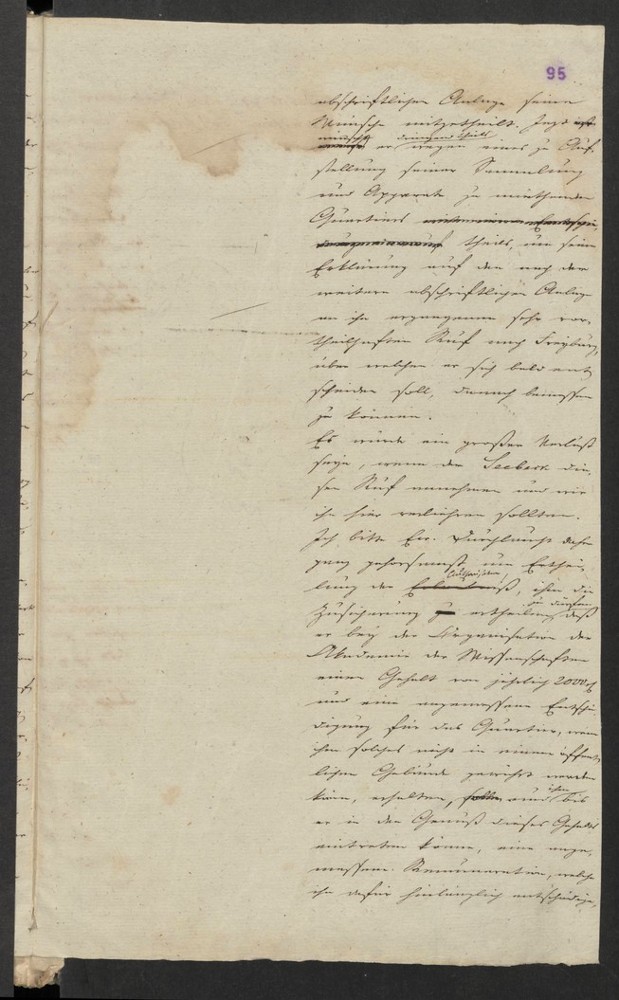 95
abschriftlichen Anlage seine
Wünsche mitgetheilt. Jezt
wünscht er dringend theils wegen eines zu Auf-
stellung seiner Sammlung
und Apparate zu miethenden
Quartiers
theils, um seine
Erklärung auf den nach der
weitern abschriftlichen Anlage
an ihn ergangenen sehr vor-
theilhaften Ruf nach Freyburg,
über welchen er sich bald ent-
scheiden soll, darnach bemessen
zu können.
Es würde ein großer Verlust
seyn, wenn der Seebeck die-
sen Ruf annehmen und wir
ihn hier verliehren sollten.
Ich bitte Ew. Durchlaucht daher
ganz gehorsamst um Erthei-
lung der Authorisation, ihm die
Zusicherung ertheilen zu dürfen, daß
er bey der Organisation der
Akademie der Wissenschaften
einen Gehalt von jährlich 2000
und eine angemessene Entschä-
digung für das Quartier, wenn
ihm solches nicht in einem öffent-
lichen Gebäude gewährt werden
kann, erhalten, und ihm bis
er in den Genuß dieses Gehalts
eintreten könne, eine ange-
messene Remuneration, welche
ihn dafür hinlänglich entschädige,